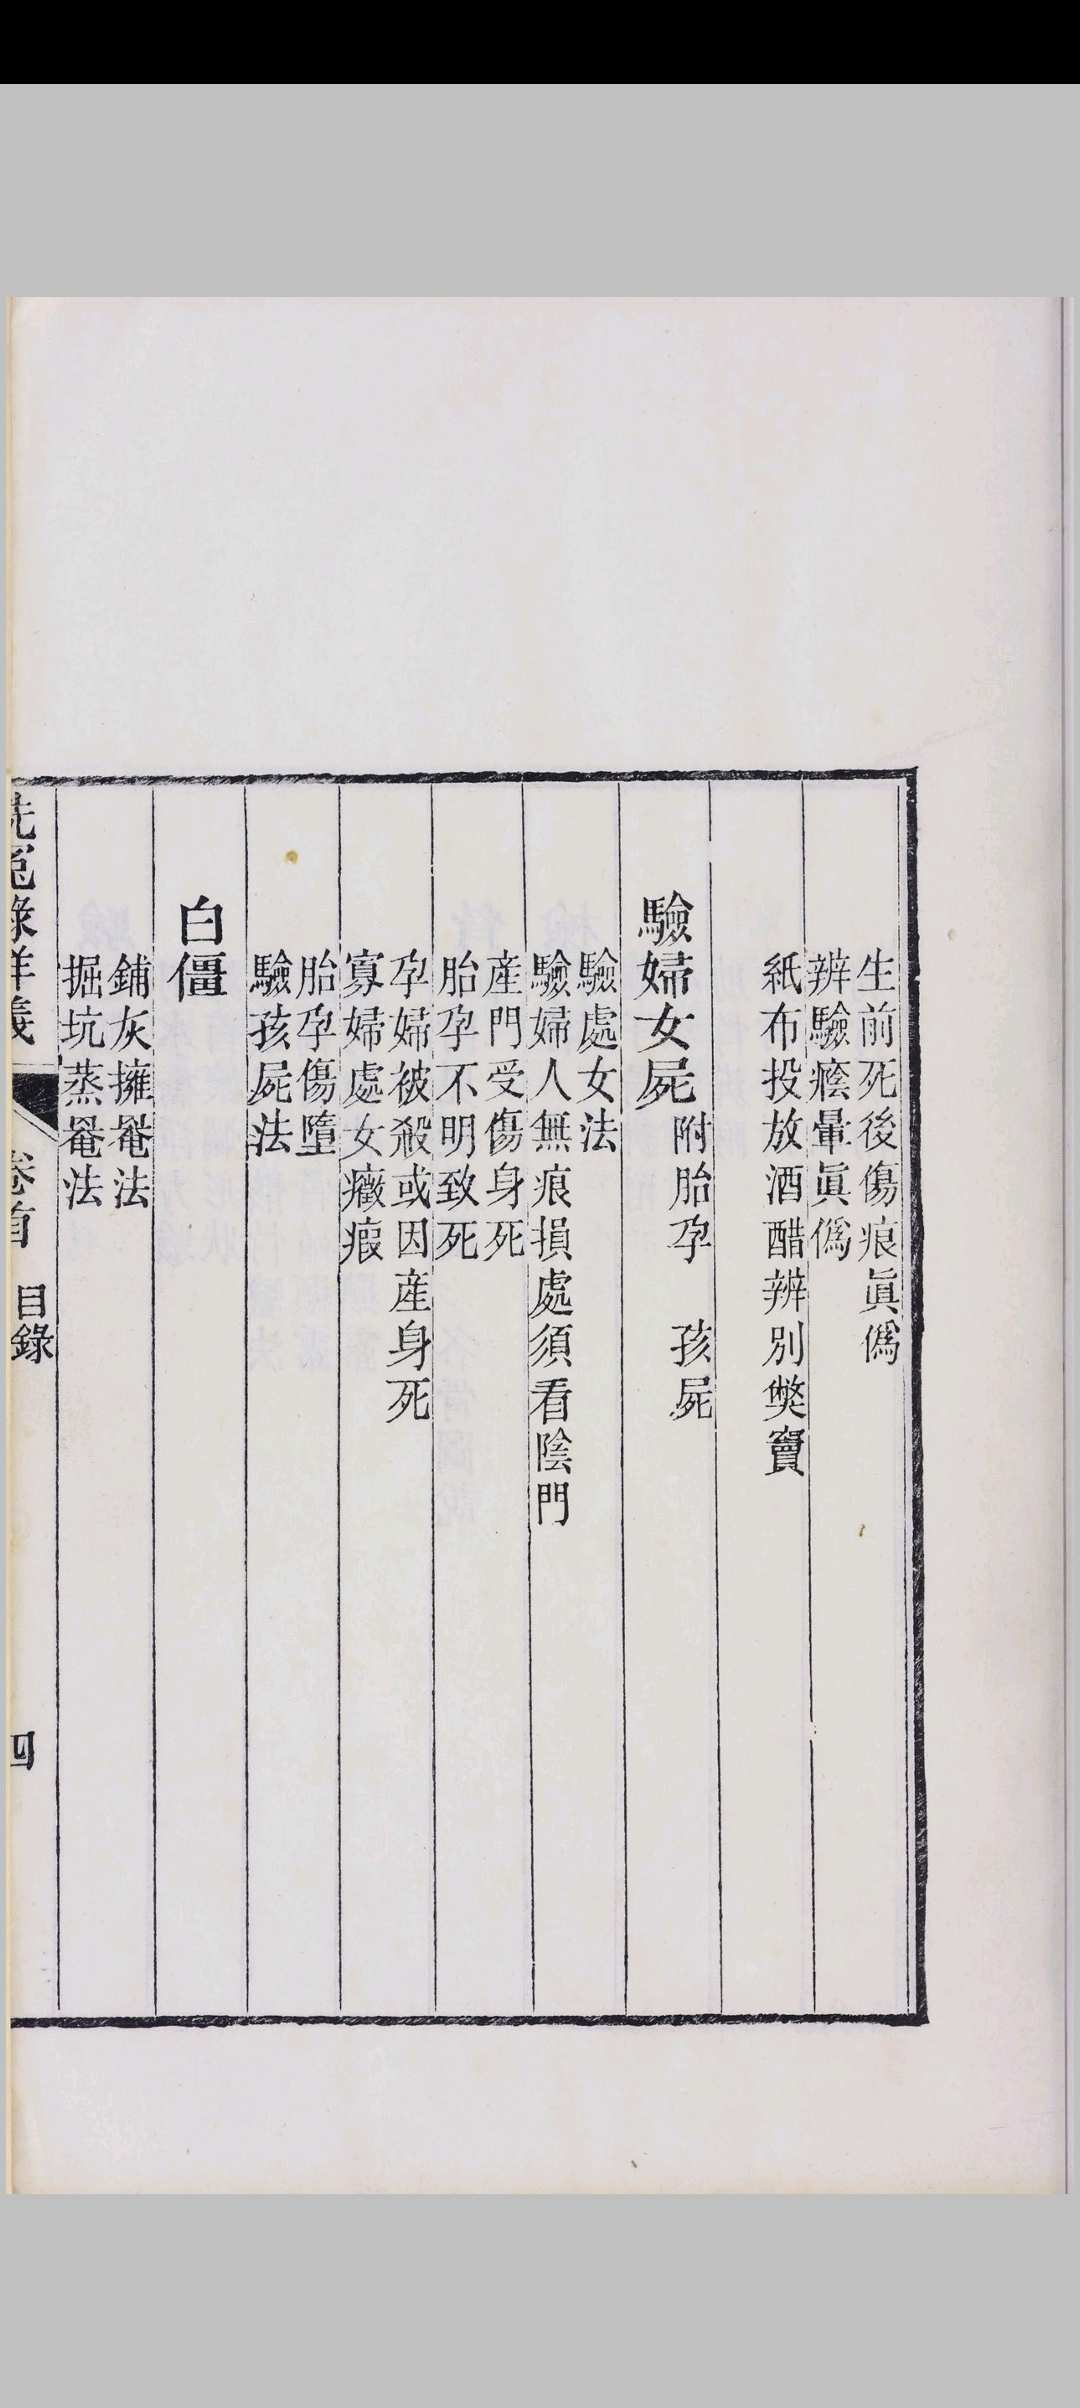 生前死後傷痕眞僞
辨驗㾗暈眞僞
紙布投放酒醋辨別獘竇
驗婦女屍附胎孕 孩屍
驗處女法
驗婦人無痕損處須看陰門
產門受傷身死
胎孕不明致死
孕婦被殺或因產身死
寡婦處女癥瘕
胎孕傷墮
驗孩屍法
白僵
鋪灰擁罨法
掘坑蒸罨法
洗冤錄詳義 卷首 目錄 四